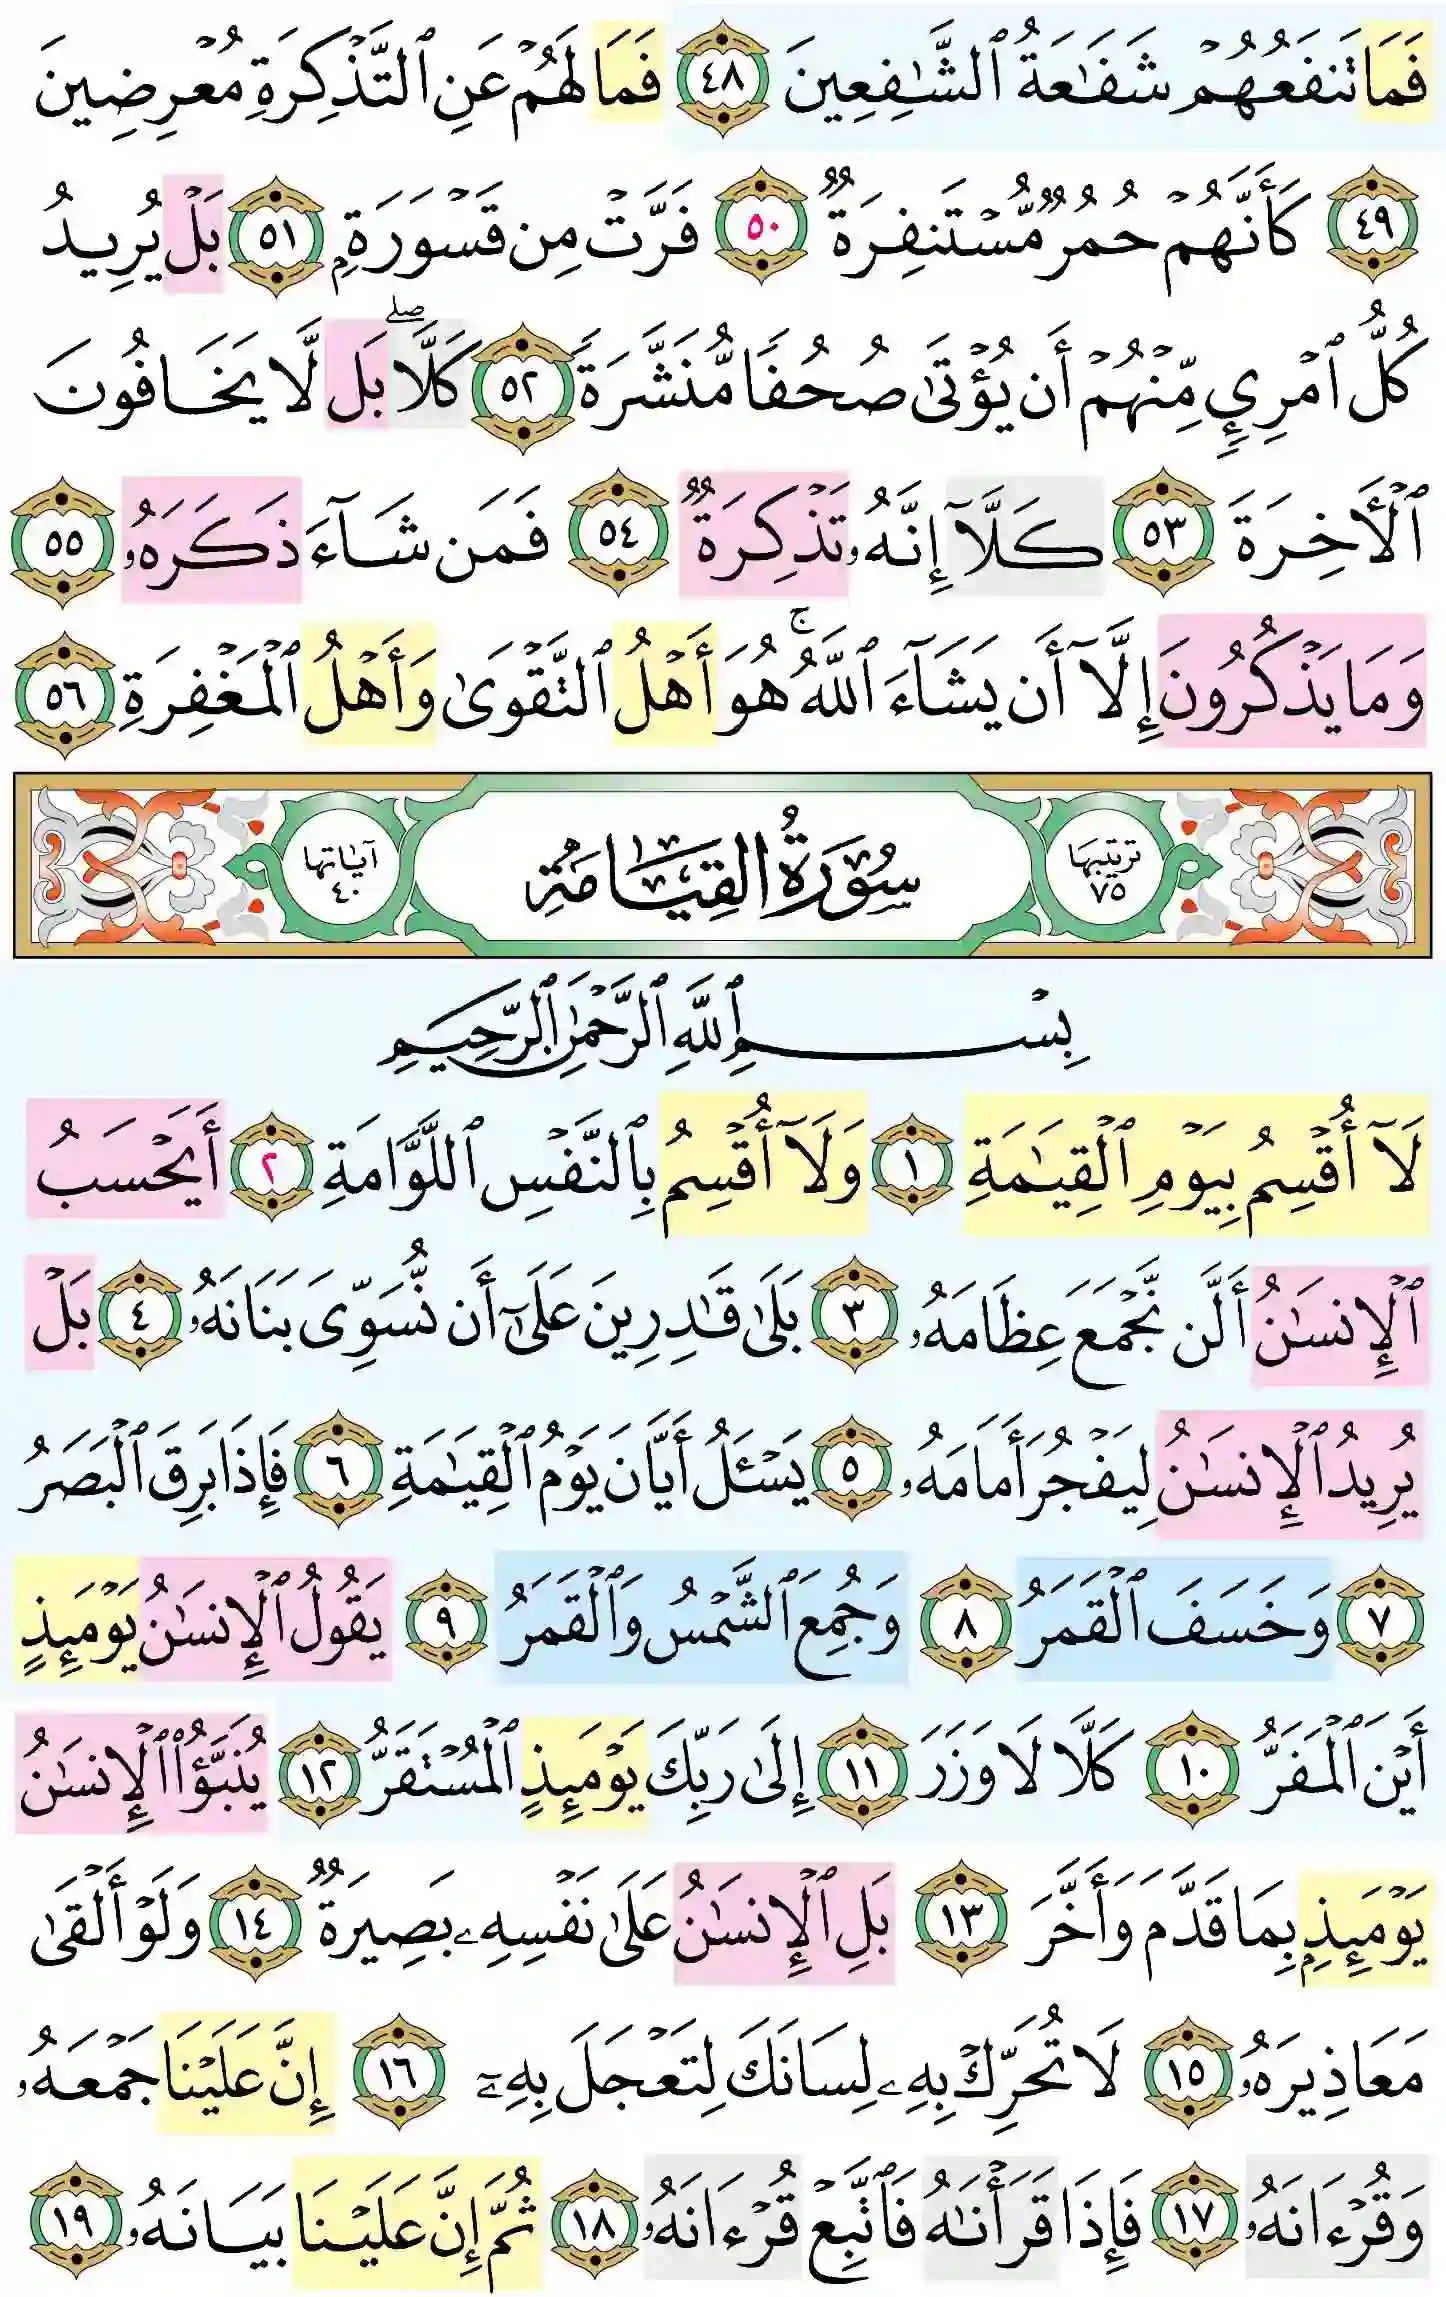 فَمَا تَنفَعُهُمْ شَفَٰعَةُ ٱلشَّٰفِعِينَ ٤٨ فَمَا لَهُمْ عَنِ ٱلتَّذْكِرَةِ مُعْرِضِينَ
٤٩ كَأَنَّهُمْ حُمُرٌ مُّسْتَنفِرَةٌ ٥٠ فَرَّتْ مِن قَسْوَرَةٍۭ ٥١ بَلْ يُرِيدُ
كُلُّ ٱمْرِئٍ مِّنْهُمْ أَن يُؤْتَىٰ صُحُفًا مُّنَشَّرَةً ٥٢ كَلَّاۖ بَل لَّا يَخَافُونَ
ٱلْأَخِرَةَ ٥٣ كَلَّآ إِنَّهُۥ تَذْكِرَةٌ ٥٤ فَمَن شَآءَ ذَكَرَهُۥ ٥٥
وَمَا يَذْكُرُونَ إِلَّآ أَن يَشَآءَ ٱللَّهُۚ هُوَ أَهْلُ ٱلتَّقْوَىٰ وَأَهْلُ ٱلْمَغْفِرَةِ ٥٦
ترتيبها ٧٥ سُورَةُ القِيَامَةِ آياتها ٤٠
بِسْمِ ٱللَّهِ ٱلرَّحْمَٰنِ ٱلرَّحِيمِ
لَآ أُقْسِمُ بِيَوْمِ ٱلْقِيَٰمَةِ ١ وَلَآ أُقْسِمُ بِٱلنَّفْسِ ٱللَّوَّامَةِ ٢ أَيَحْسَبُ
ٱلْإِنسَٰنُ أَلَّن نَّجْمَعَ عِظَامَهُۥ ٣ بَلَىٰ قَٰدِرِينَ عَلَىٰٓ أَن نُّسَوِّىَ بَنَانَهُۥ ٤ بَلْ
يُرِيدُ ٱلْإِنسَٰنُ لِيَفْجُرَ أَمَامَهُۥ ٥ يَسْـَٔلُ أَيَّانَ يَوْمُ ٱلْقِيَٰمَةِ ٦ فَإِذَا بَرِقَ ٱلْبَصَرُ
٧ وَخَسَفَ ٱلْقَمَرُ ٨ وَجُمِعَ ٱلشَّمْسُ وَٱلْقَمَرُ ٩ يَقُولُ ٱلْإِنسَٰنُ يَوْمَئِذٍ
أَيْنَ ٱلْمَفَرُّ ١٠ كَلَّا لَا وَزَرَ ١١ إِلَىٰ رَبِّكَ يَوْمَئِذٍ ٱلْمُسْتَقَرُّ ١٢ يُنَبَّؤُا۟ ٱلْإِنسَٰنُ
يَوْمَئِذٍۭ بِمَا قَدَّمَ وَأَخَّرَ ١٣ بَلِ ٱلْإِنسَٰنُ عَلَىٰ نَفْسِهِۦ بَصِيرَةٌ ١٤ وَلَوْ أَلْقَىٰ
مَعَاذِيرَهُۥ ١٥ لَا تُحَرِّكْ بِهِۦ لِسَانَكَ لِتَعْجَلَ بِهِۦٓ ١٦ إِنَّ عَلَيْنَا جَمْعَهُۥ
وَقُرْءَانَهُۥ ١٧ فَإِذَا قَرَأْنَٰهُ فَٱتَّبِعْ قُرْءَانَهُۥ ١٨ ثُمَّ إِنَّ عَلَيْنَا بَيَانَهُۥ ١٩